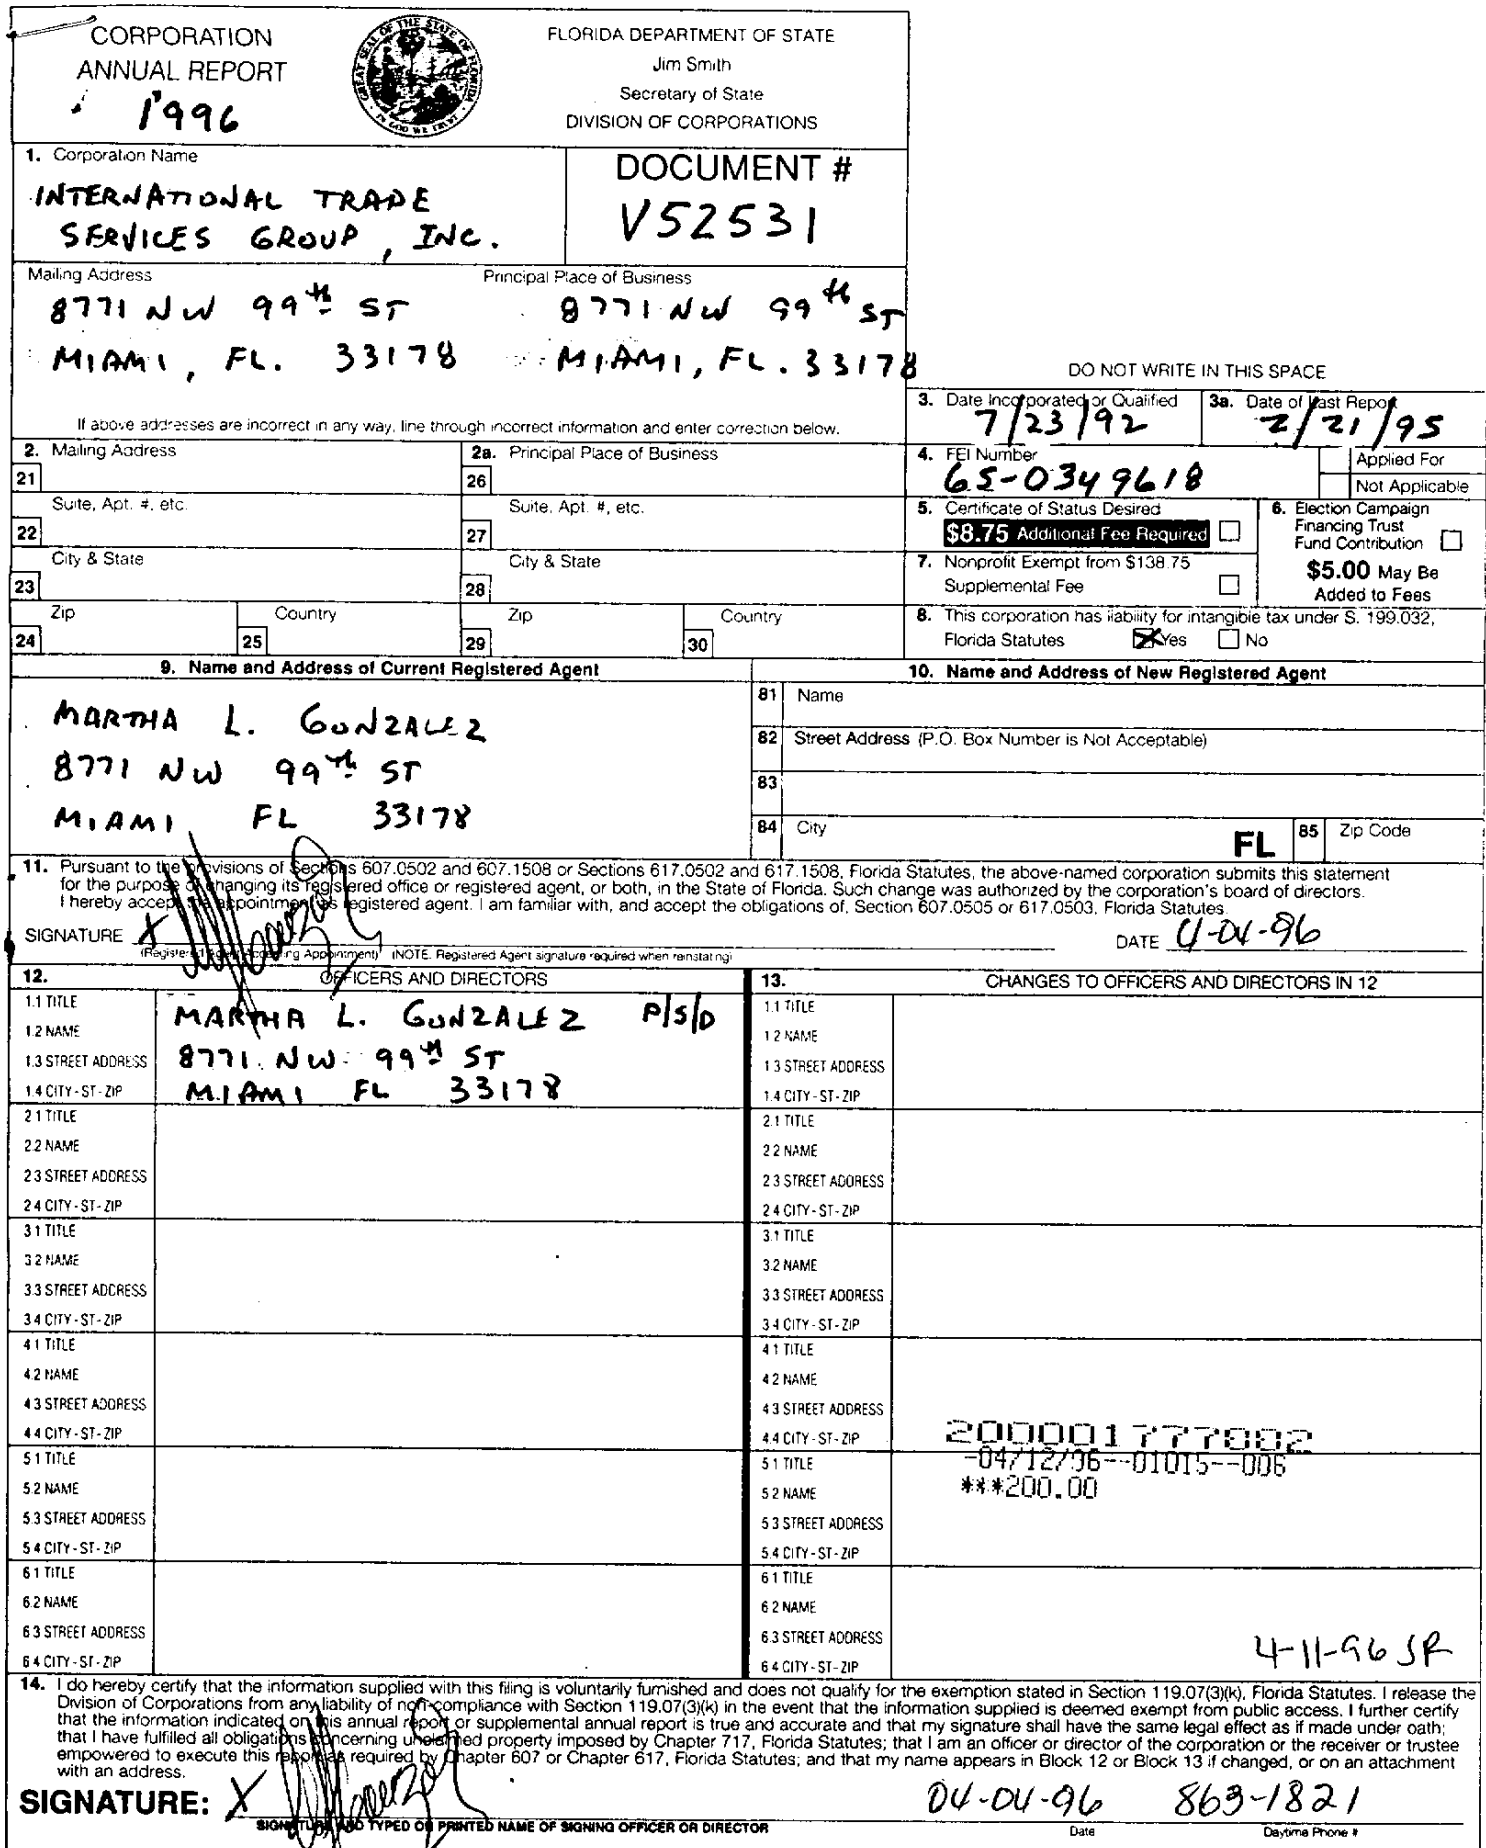 CORPORATION
ANNUAL REPORT
1996
GREAT SEAL OF THE STATE OF FLORIDA
IN GOD WE TRUST
FLORIDA DEPARTMENT OF STATE
Jim Smith
Secretary of State
DIVISION OF CORPORATIONS
1. Corporation Name
INTERNATIONAL TRADE
SERVICES GROUP, INC.
DOCUMENT #
V52531
Mailing Address
8771 NW 99th ST
MIAMI, FL. 33178
Principal Place of Business
8771 NW 99th ST
MIAMI, FL. 33178
If above addresses are incorrect in any way, line through incorrect information and enter correction below.
DO NOT WRITE IN THIS SPACE
3. Date Incorporated or Qualified
7/23/92
3a. Date of Last Report
2/21/95
2. Mailing Address
21
Suite, Apt. #, etc.
22
City & State
23
Zip
24
Country
25
2a. Principal Place of Business
26
Suite, Apt. #, etc.
27
City & State
28
Zip
29
Country
30
4. FEI Number
65-0349618
Applied For
Not Applicable
5. Certificate of Status Desired
$8.75 Additional Fee Required
6. Election Campaign
Financing Trust
Fund Contribution
$5.00 May Be
Added to Fees
7. Nonprofit Exempt from $138.75
Supplemental Fee
8. This corporation has liability for intangible tax under S. 199.032,
Florida Statutes Yes No
9. Name and Address of Current Registered Agent
MARTHA L. GONZALEZ
8771 NW 99th ST
MIAMI FL 33178
10. Name and Address of New Registered Agent
81 Name
82 Street Address (P.O. Box Number is Not Acceptable)
83
84 City
FL
85 Zip Code
11. Pursuant to the provisions of Sections 607.0502 and 607.1508 or Sections 617.0502 and 617.1508, Florida Statutes, the above-named corporation submits this statement
for the purpose of changing its registered office or registered agent, or both, in the State of Florida. Such change was authorized by the corporation's board of directors.
I hereby accept the appointment as registered agent. I am familiar with, and accept the obligations of, Section 607.0505 or 617.0503, Florida Statutes.
SIGNATURE X
DATE 4-04-96
(Registered Agent Accepting Appointment) (NOTE. Registered Agent signature required when reinstating)
12. OFFICERS AND DIRECTORS
1.1 TITLE
1.2 NAME
1.3 STREET ADDRESS
1.4 CITY-ST-ZIP
MARTHA L. GONZALEZ P/S/D
8771 NW 99th ST
MIAMI FL 33178
2.1 TITLE
2.2 NAME
2.3 STREET ADDRESS
2.4 CITY-ST-ZIP
3.1 TITLE
3.2 NAME
3.3 STREET ADDRESS
3.4 CITY-ST-ZIP
4.1 TITLE
4.2 NAME
4.3 STREET ADDRESS
4.4 CITY-ST-ZIP
5.1 TITLE
5.2 NAME
5.3 STREET ADDRESS
5.4 CITY-ST-ZIP
6.1 TITLE
6.2 NAME
6.3 STREET ADDRESS
6.4 CITY-ST-ZIP
13. CHANGES TO OFFICERS AND DIRECTORS IN 12
1.1 TITLE
1.2 NAME
1.3 STREET ADDRESS
1.4 CITY-ST-ZIP
2.1 TITLE
2.2 NAME
2.3 STREET ADDRESS
2.4 CITY-ST-ZIP
3.1 TITLE
3.2 NAME
3.3 STREET ADDRESS
3.4 CITY-ST-ZIP
4.1 TITLE
4.2 NAME
4.3 STREET ADDRESS
4.4 CITY-ST-ZIP
200001777002
-04/12/96--01015--006
***200.00
5.1 TITLE
5.2 NAME
5.3 STREET ADDRESS
5.4 CITY-ST-ZIP
6.1 TITLE
6.2 NAME
6.3 STREET ADDRESS
6.4 CITY-ST-ZIP
4-11-96 JR
14. I do hereby certify that the information supplied with this filing is voluntarily furnished and does not qualify for the exemption stated in Section 119.07(3)(k), Florida Statutes. I release the
Division of Corporations from any liability of non-compliance with Section 119.07(3)(k) in the event that the information supplied is deemed exempt from public access. I further certify
that the information indicated on this annual report or supplemental annual report is true and accurate and that my signature shall have the same legal effect as if made under oath;
that I have fulfilled all obligations concerning unclaimed property imposed by Chapter 717, Florida Statutes; that I am an officer or director of the corporation or the receiver or trustee
empowered to execute this report as required by Chapter 607 or Chapter 617, Florida Statutes; and that my name appears in Block 12 or Block 13 if changed, or on an attachment
with an address.
SIGNATURE: X
04-04-96 863-1821
SIGNATURE AND TYPED OR PRINTED NAME OF SIGNING OFFICER OR DIRECTOR
Date
Daytime Phone #